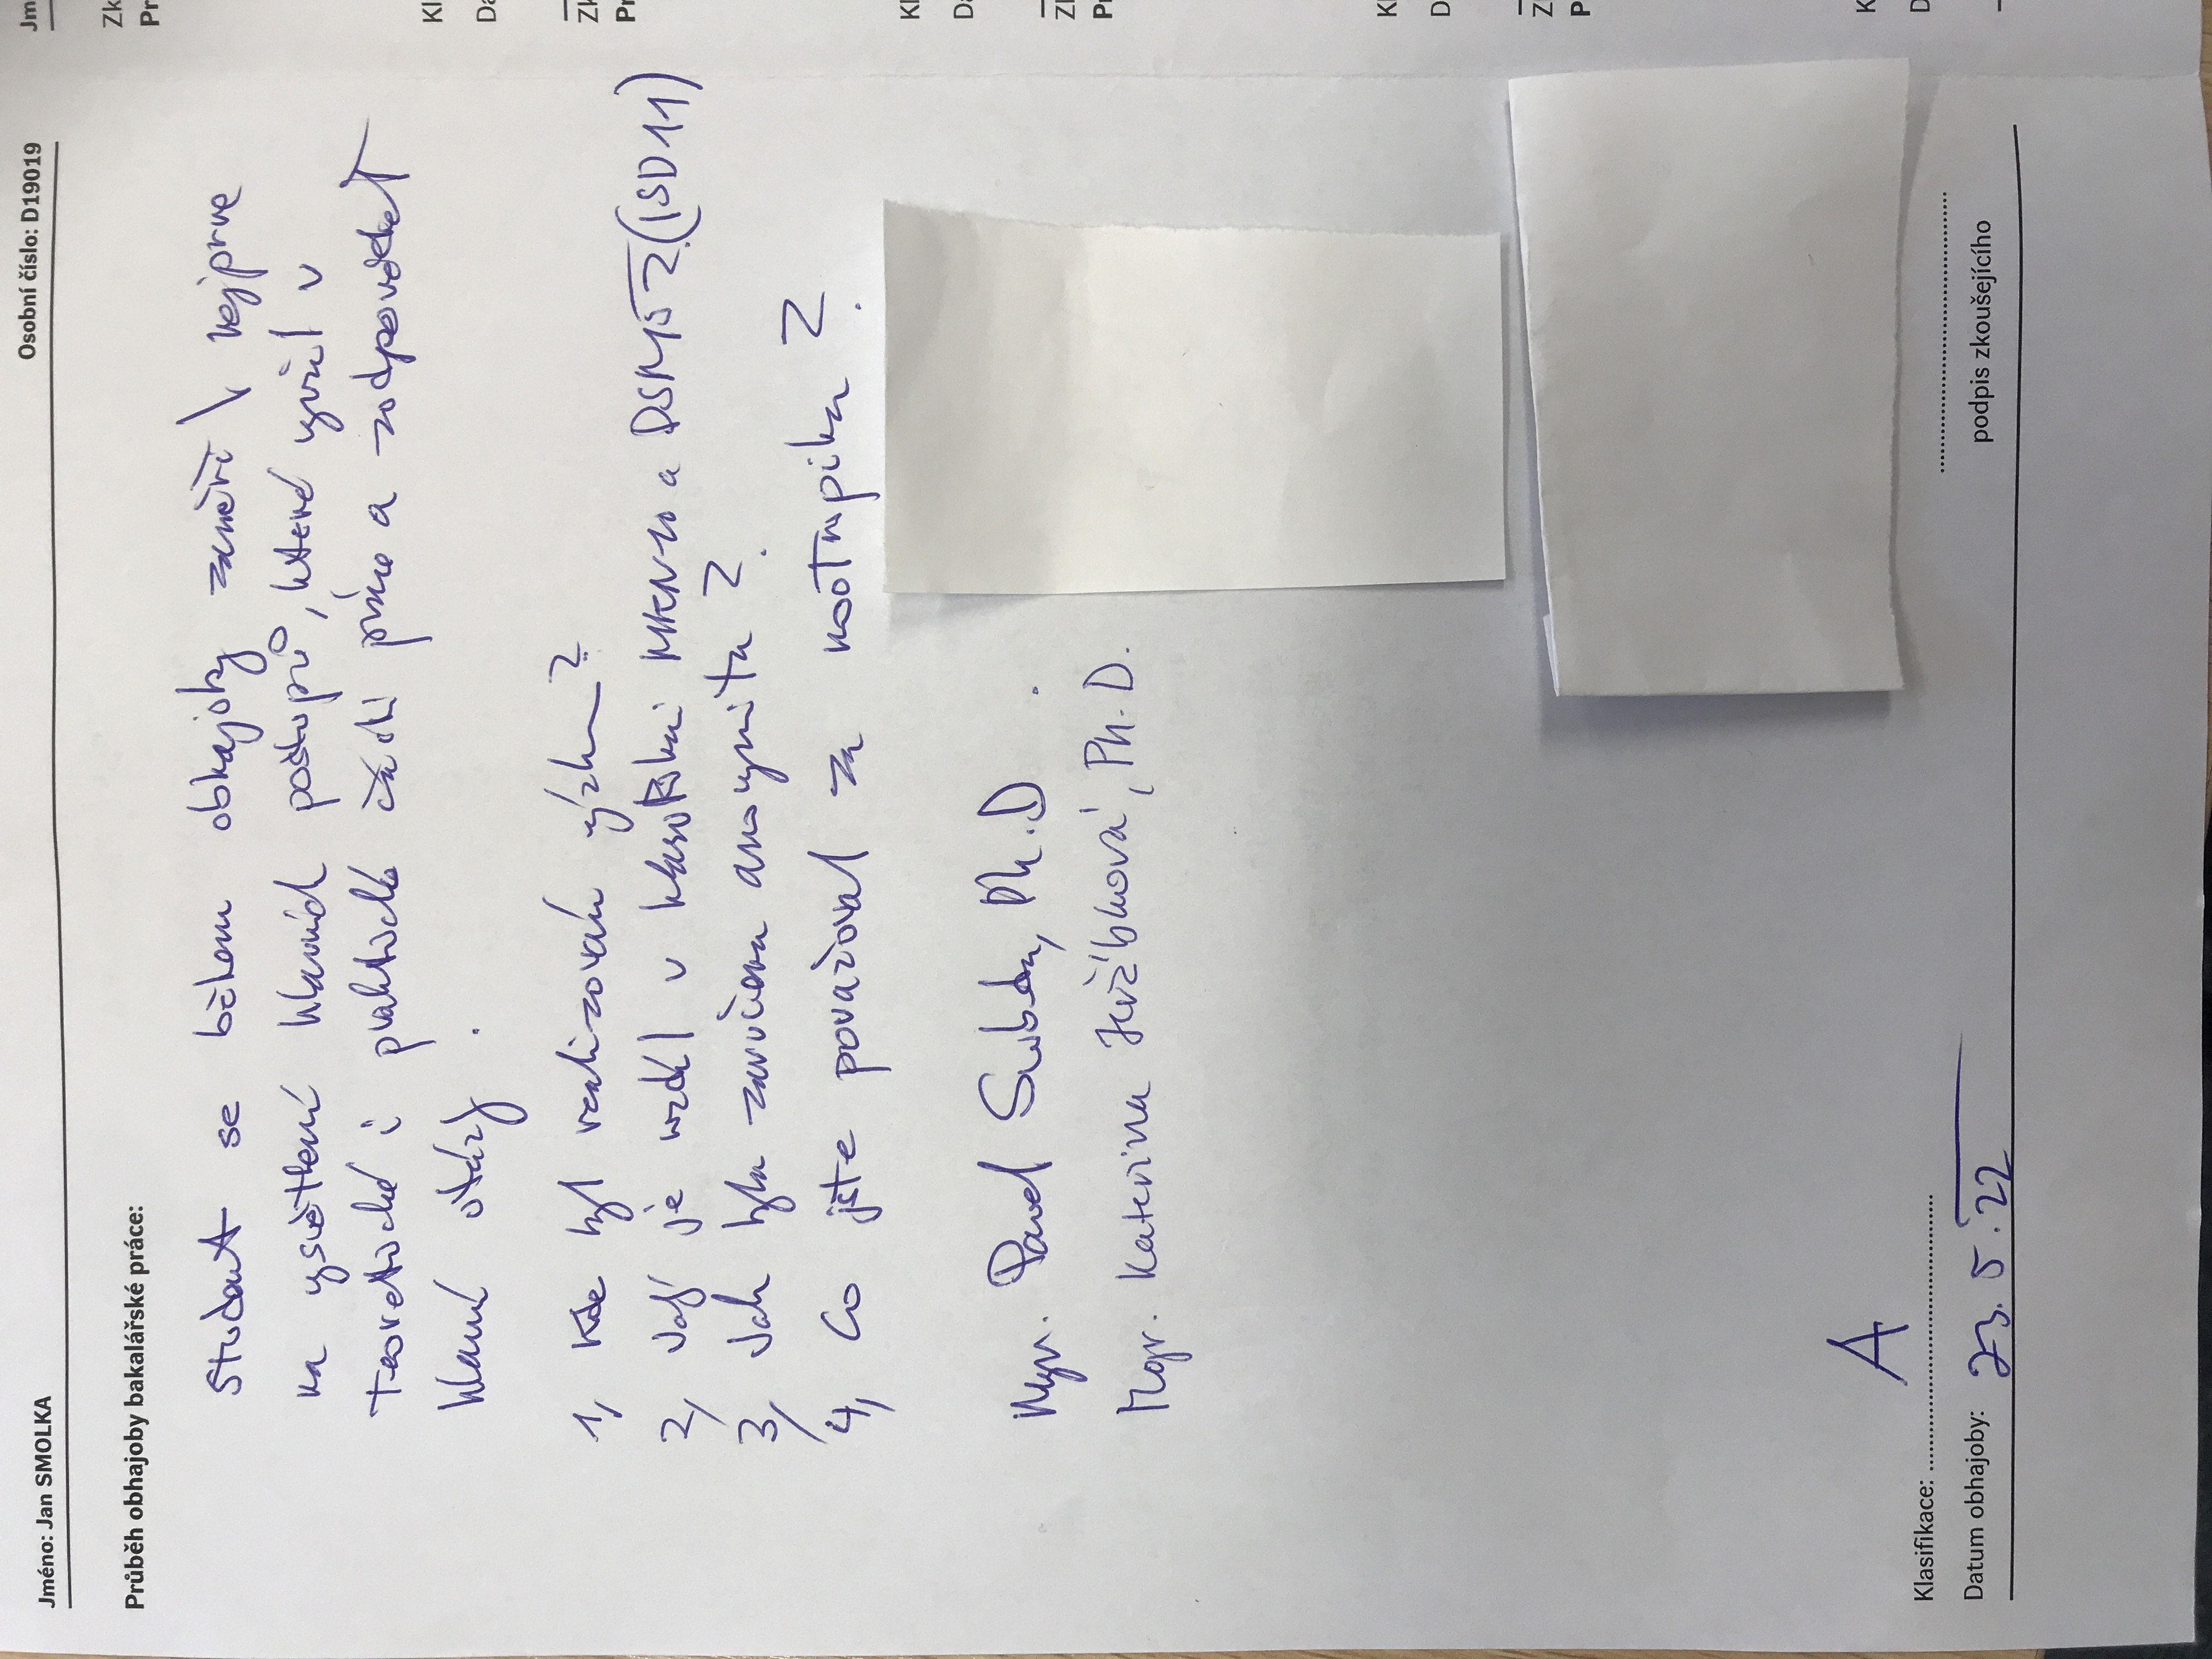 Jméno: Jan SMOLKA Osobní číslo: D19019
Průběh obhajoby bakalářské práce:
Student se během obhajoby zaměřil nejprve
na vysvětlení hlavních postupů, které využil v
teoretické i praktické části práce a zodpovídat
hlavní otázky.
1, Kde byl realizován výzkum?
2, Jaký je rozdíl v klasifikaci MKN10 a DSM5? (ISD11)
3, Jak byla zaručena anonymita?
4, Co jste považoval za nootropika?
Mgr. Pavel Ph.D.
Mgr. Kateřina Jeřábková, Ph.D.
A
Klasifikace:
Datum obhajoby: 23. 5. 22
podpis zkoušejícího